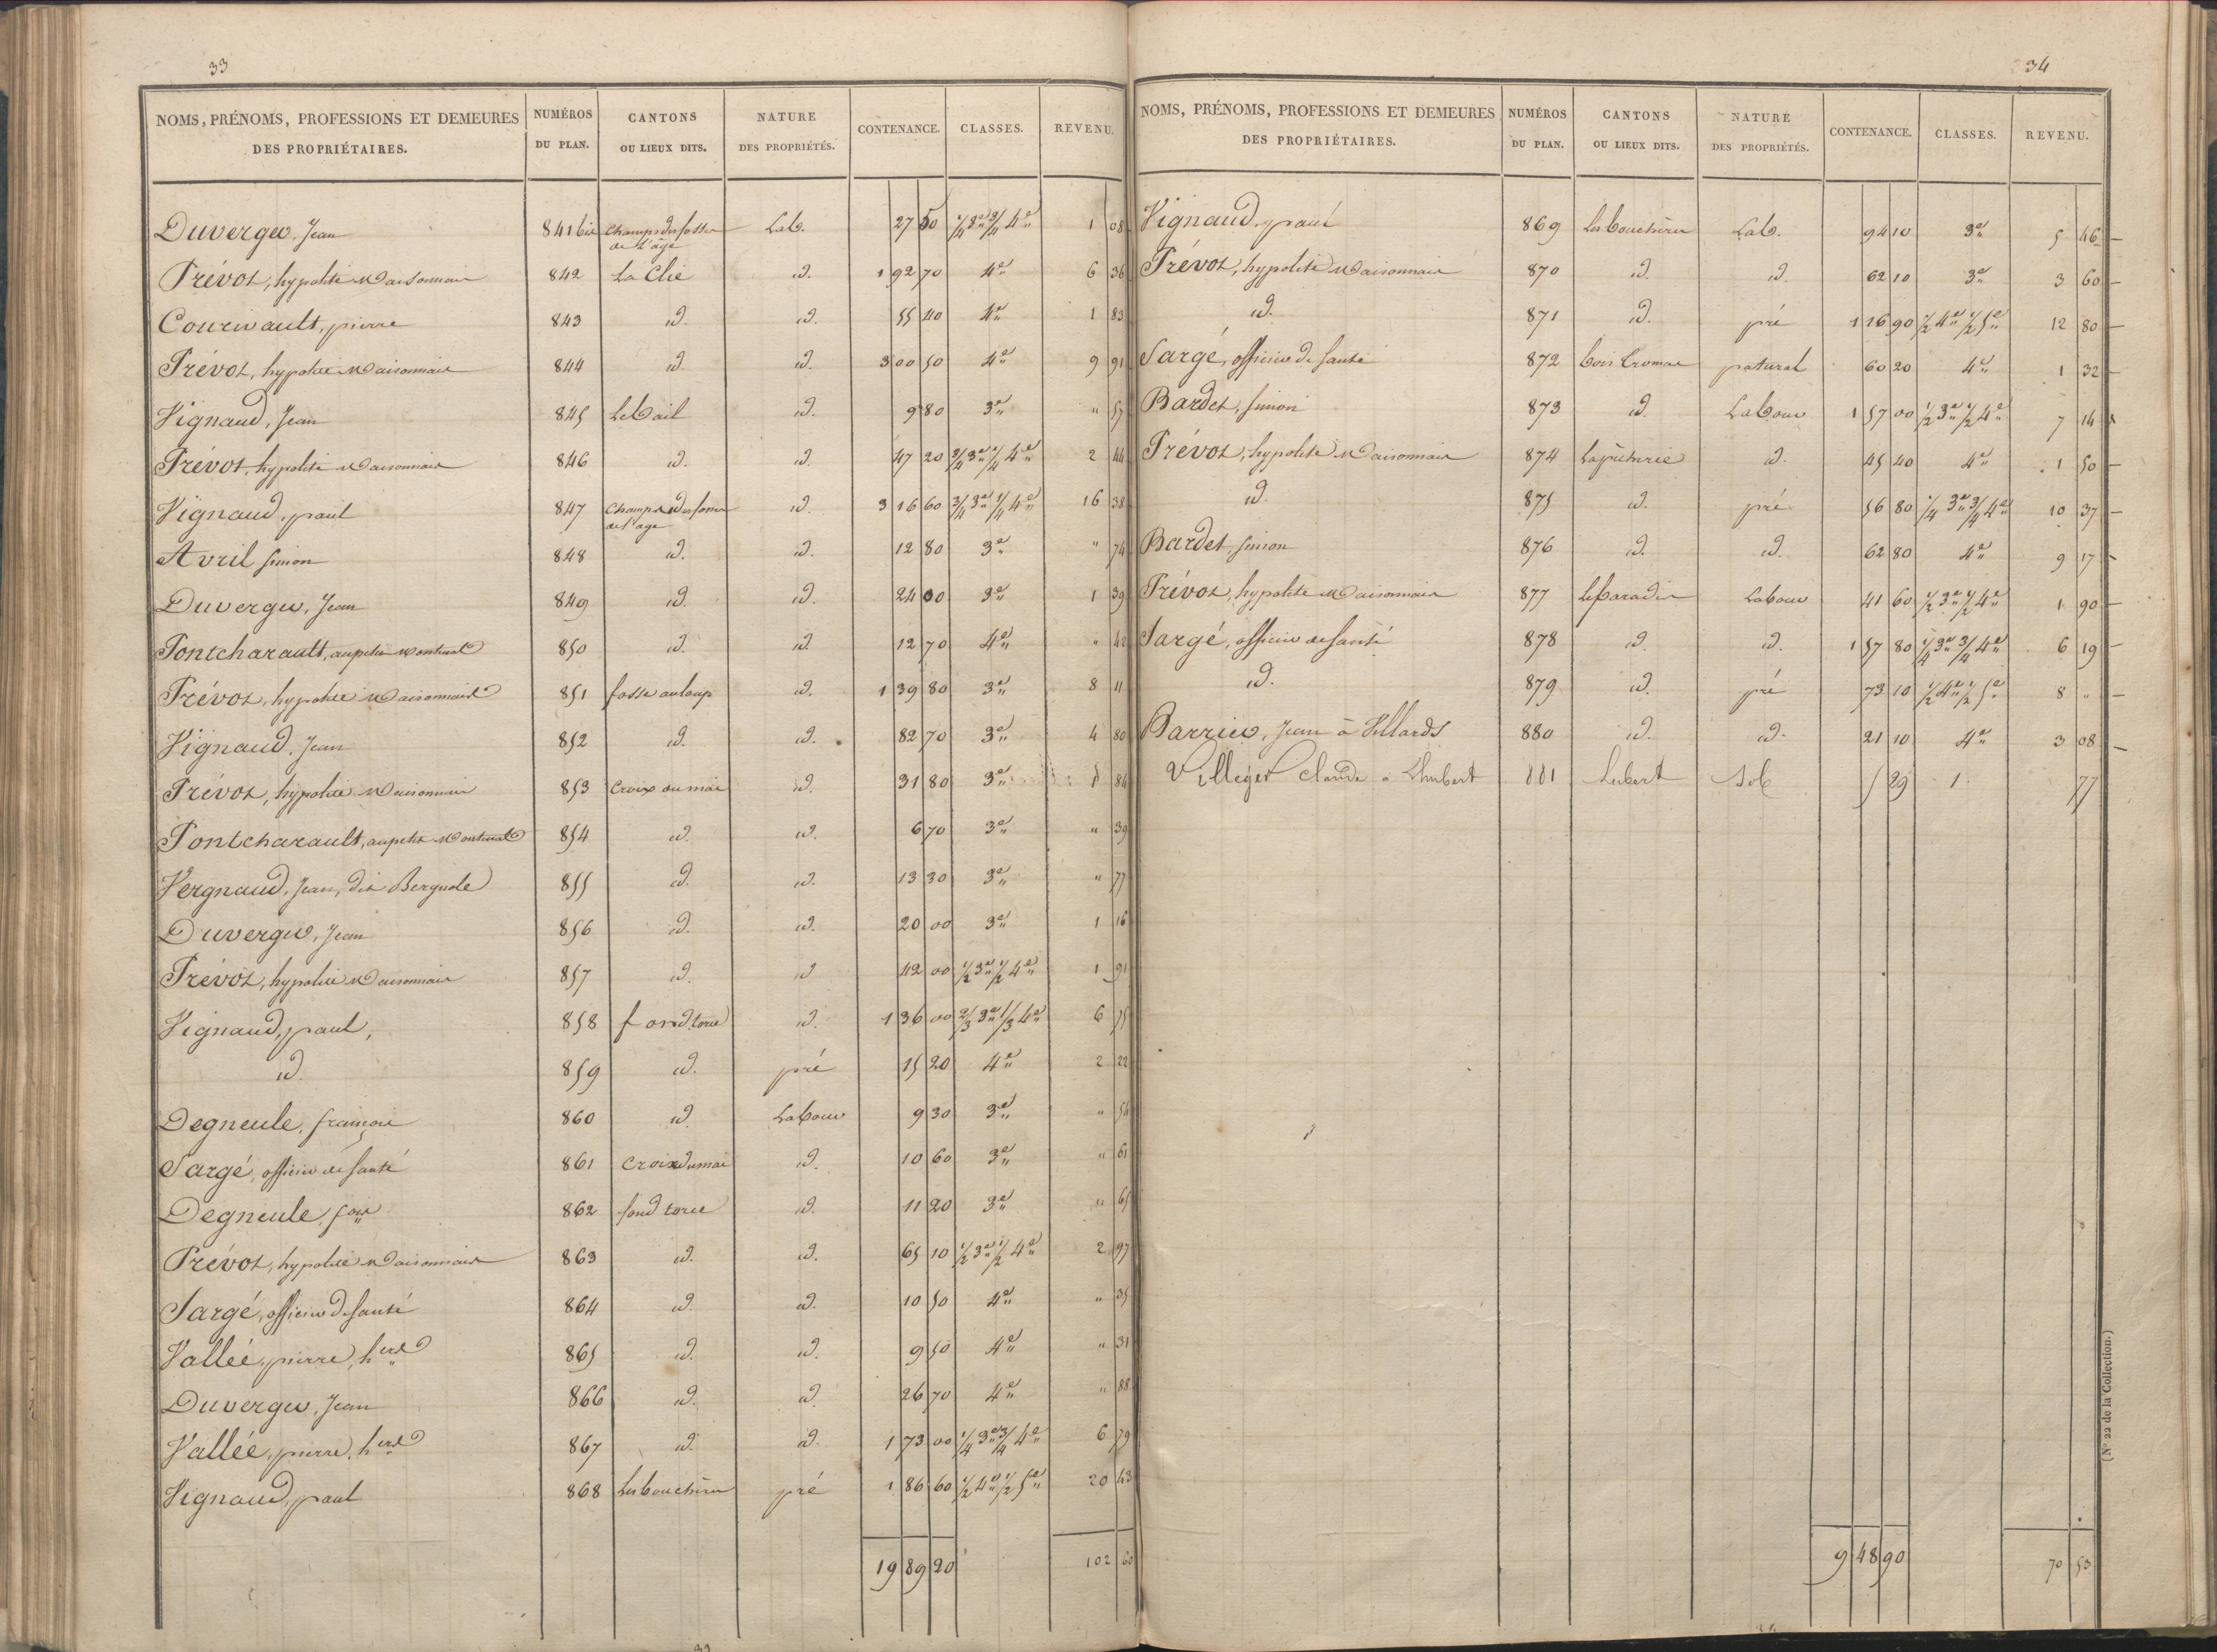 33
NOMS, PRÉNOMS, PROFESSIONS ET DEMEURES DES PROPRIÉTAIRES. NUMÉROS DU PLAN. CANTONS OU LIEUX DITS. NATURE DES PROPRIÉTÉS. CONTENANCE. CLASSES. REVENU.
Duverger, Jean 841 bis champs des fosses de l'âge Lab. 27 50 1/4 3e 3/4 4e 1 08
Prévot, hypolite Maisonnais 842 La Clie id. 1 92 70 4e 6 36
Courivault, pierre 843 id. id. 55 40 4e 1 83
Prévot, hypolite Maisonnais 844 id. id. 3 00 50 4e 9 91
Vignaud, Jean 845 Le bail id. 9 80 3e " 57
Prévot, hypolite Maisonnais 846 id. id. 47 20 3/4 3e 1/4 4e 2 44
Vignaud, paul 847 champs des fosses de l'age id. 3 16 60 3/4 3e 1/4 4e 16 38
Avril simon 848 id. id. 12 80 3e " 74
Duverger, Jean 849 id. id. 24 00 3e 1 39
Pontcharault, au petit 850 id. id. 12 70 4e " 42
Prévot, hypolite Maisonnais 851 fosse au loup id. 1 39 80 3e 8 11
Vignaud, Jean 852 id. id. 82 70 3e 4 80
Prévot, hypolite Maisonnais 853 Croix du mai id. 31 80 3e 1 84
Pontcharault, au petit 854 id. id. 6 70 3e " 39
Vergnaud, Jean, dit Bergnole 855 id. id. 13 30 3e " 77
Duverger, Jean 856 id. id. 20 00 3e 1 16
Prévot, hypolite Maisonnais 857 id. id 42 00 1/2 3e 1/2 4e 1 91
Vignaud, paul, 858 fond torse id. 1 36 00 2/3 3e 1/3 4e 6 75
id. 859 id. pré 15 20 4e 2 22
Degneule, françois 860 id. Labour 9 30 3e " 54
Sargé, officier de santé 861 croix du mai id. 10 60 3e " 61
Degneule, fois 862 fond torse id. 11 20 3e " 65
Prévot, hypolite Maisonnais 863 id. id. 65 10 1/2 3e 1/2 4e 2 97
Sargé, officier de santé 864 id. id. 10 50 4e " 35
Vallée, pierre, hers 865 id. id. 9 50 4e " 31
Duverger, Jean 866 id. id. 26 70 4e " 88
Vallée, pierre, hers 867 id. id. 1 73 00 1/4 3e 3/4 4e 6 79
Vignaud, paul 868 Les pré 1 86 60 1/2 4e 1/2 5e 20 43
19 89 20 102 60
34
NOMS, PRÉNOMS, PROFESSIONS ET DEMEURES DES PROPRIÉTAIRES. NUMÉROS DU PLAN. CANTONS OU LIEUX DITS. NATURE DES PROPRIÉTÉS. CONTENANCE. CLASSES. REVENU.
Vignaud, paul 869 Les Lab. 94 10 3e 5 46
Prévot, hypolite Maisonnais 870 id. id. 62 10 3e 3 60
id. 871 id. pré 1 16 90 1/2 4e 1/2 5e 12 80
Sargé, officier de santé 872 bois patural 60 20 4e 1 32
Bardet, simon 873 id. Labour 1 57 00 1/2 3e 1/2 4e 7 14
Prévot, hypolite Maisonnais 874 id. 45 40 4e 1 50
id. 875 id. pré 56 80 1/4 3e 3/4 4e 10 37
Bardet simon 876 id. id. 62 80 4e 9 17
Prévot, hypolite Maisonnais 877 Le paradis Labour 41 60 1/2 3e 1/2 4e 1 90
Sargé, officier de santé 878 id. id. 1 57 80 1/4 3e 3/4 4e 6 19
id. 879 id. pré 73 10 1/2 4e 1/2 5e 8 "
Barrier, Jean à Villards 880 id. id. 21 10 4e 3 08
Villéger Claude a Lhubert 881 Lubert Sol 5 29 1 77
9 48 90 70 53
(N° 22 de la Collection.)